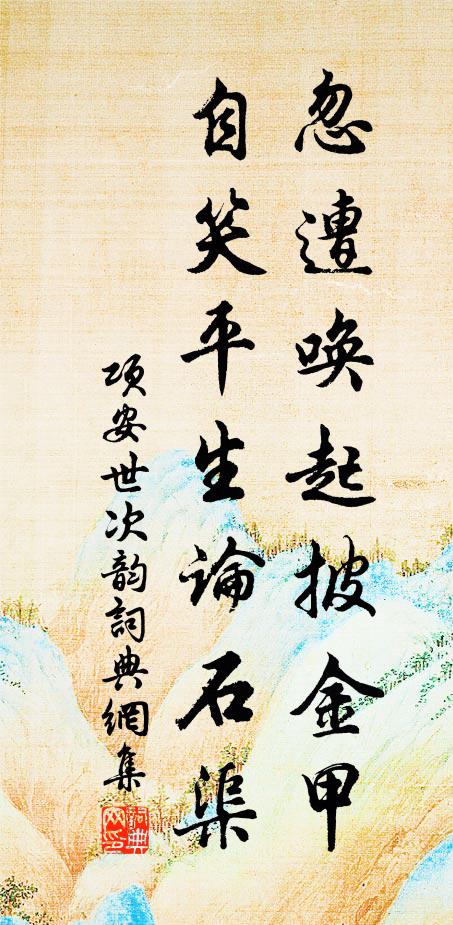 忽遭唤起披金甲
自笑平生论石渠
项安世次韵詞典網集